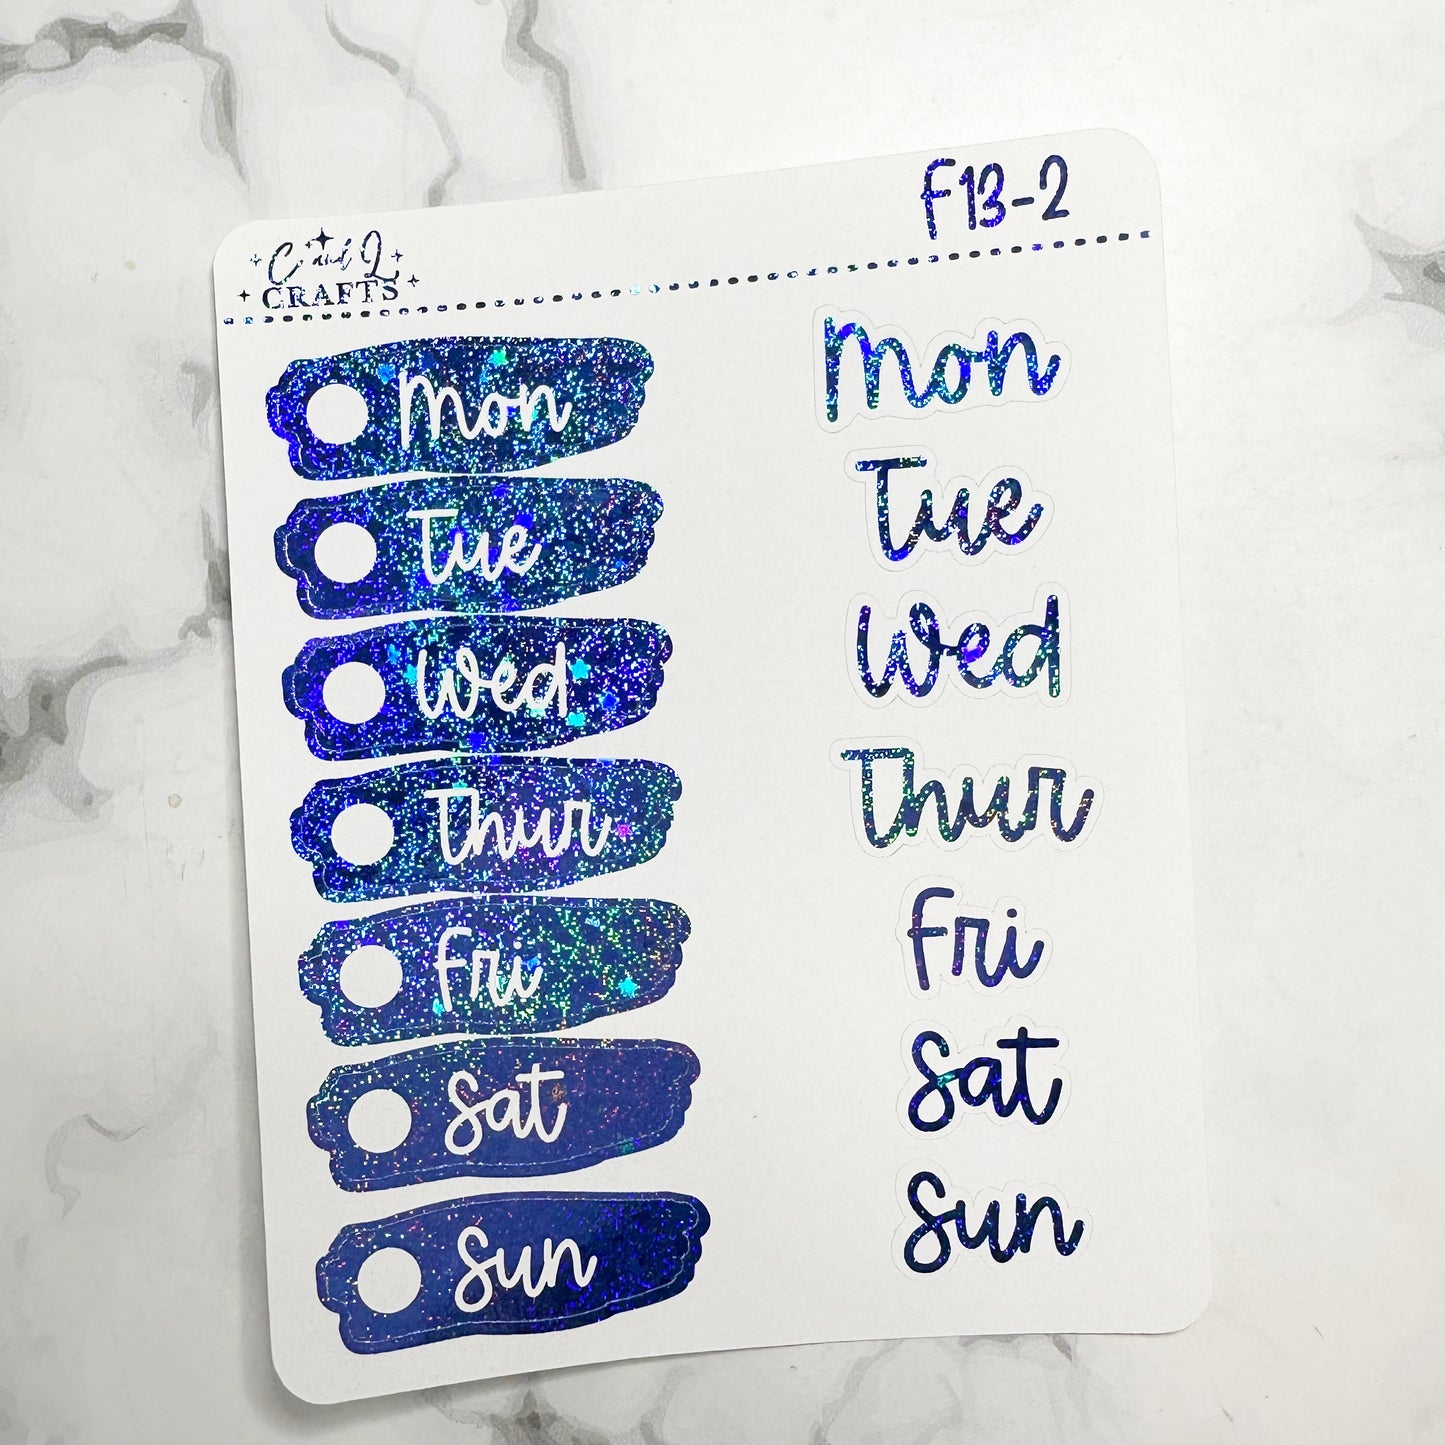 C and L
CRAFTS
F13-2
Mon
Tue
Wed
Thur
Fri
Sat
Sun
Mon
Tue
Wed
Thur
Fri
Sat
Sun